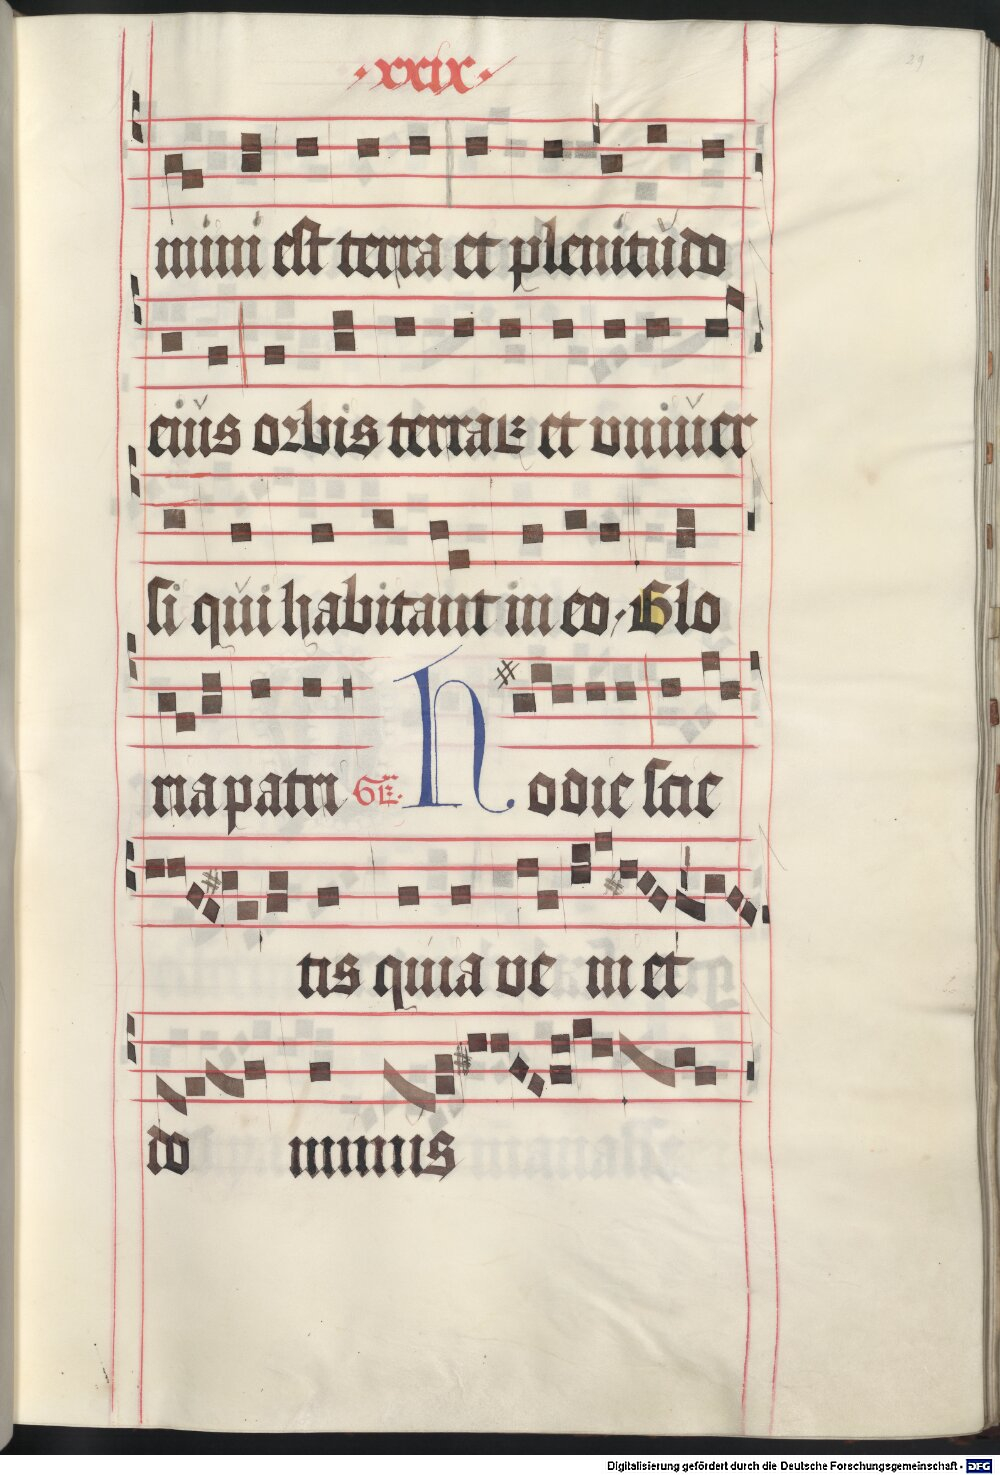 ·xxix·
29
mini est terra et plenitudo
eius orbis terraꝝ et univer
si qui habitant in eo· Glo
ria patri GR· Hodie scie
tis quia ve niet
do minus
Digitalisierung gefördert durch die Deutsche Forschungsgemeinschaft - DFG